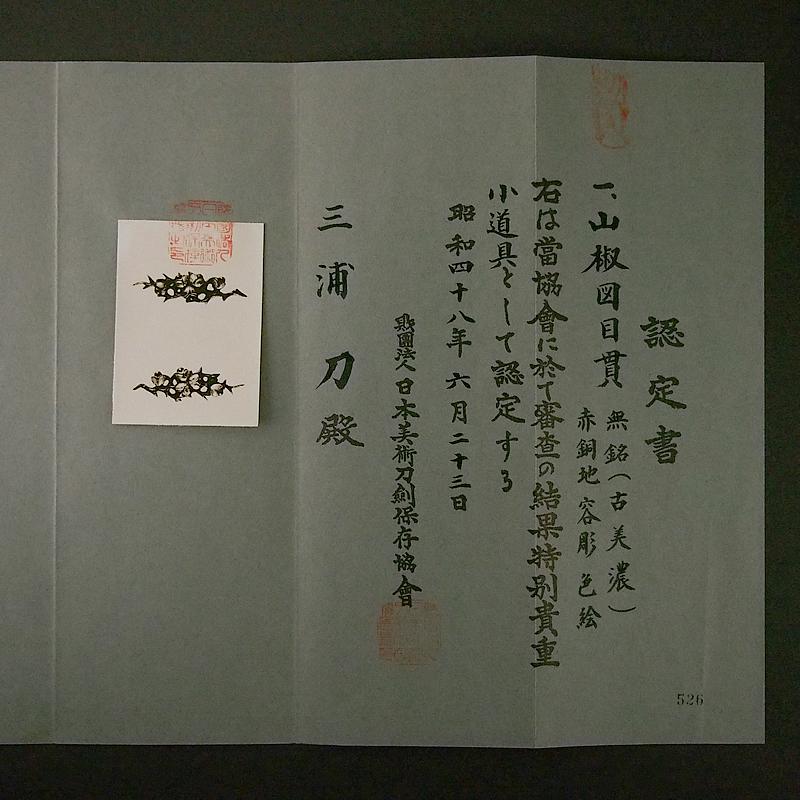 認定書
一、山椒図目貫
無銘(古美濃)
赤銅地 容彫 色絵
右は當協會に於て審査の結果特別貴重
小道具として認定する
昭和四十八年 六月二十三日
財團法人日本美術刀劍保存協會
三浦 刀殿
526